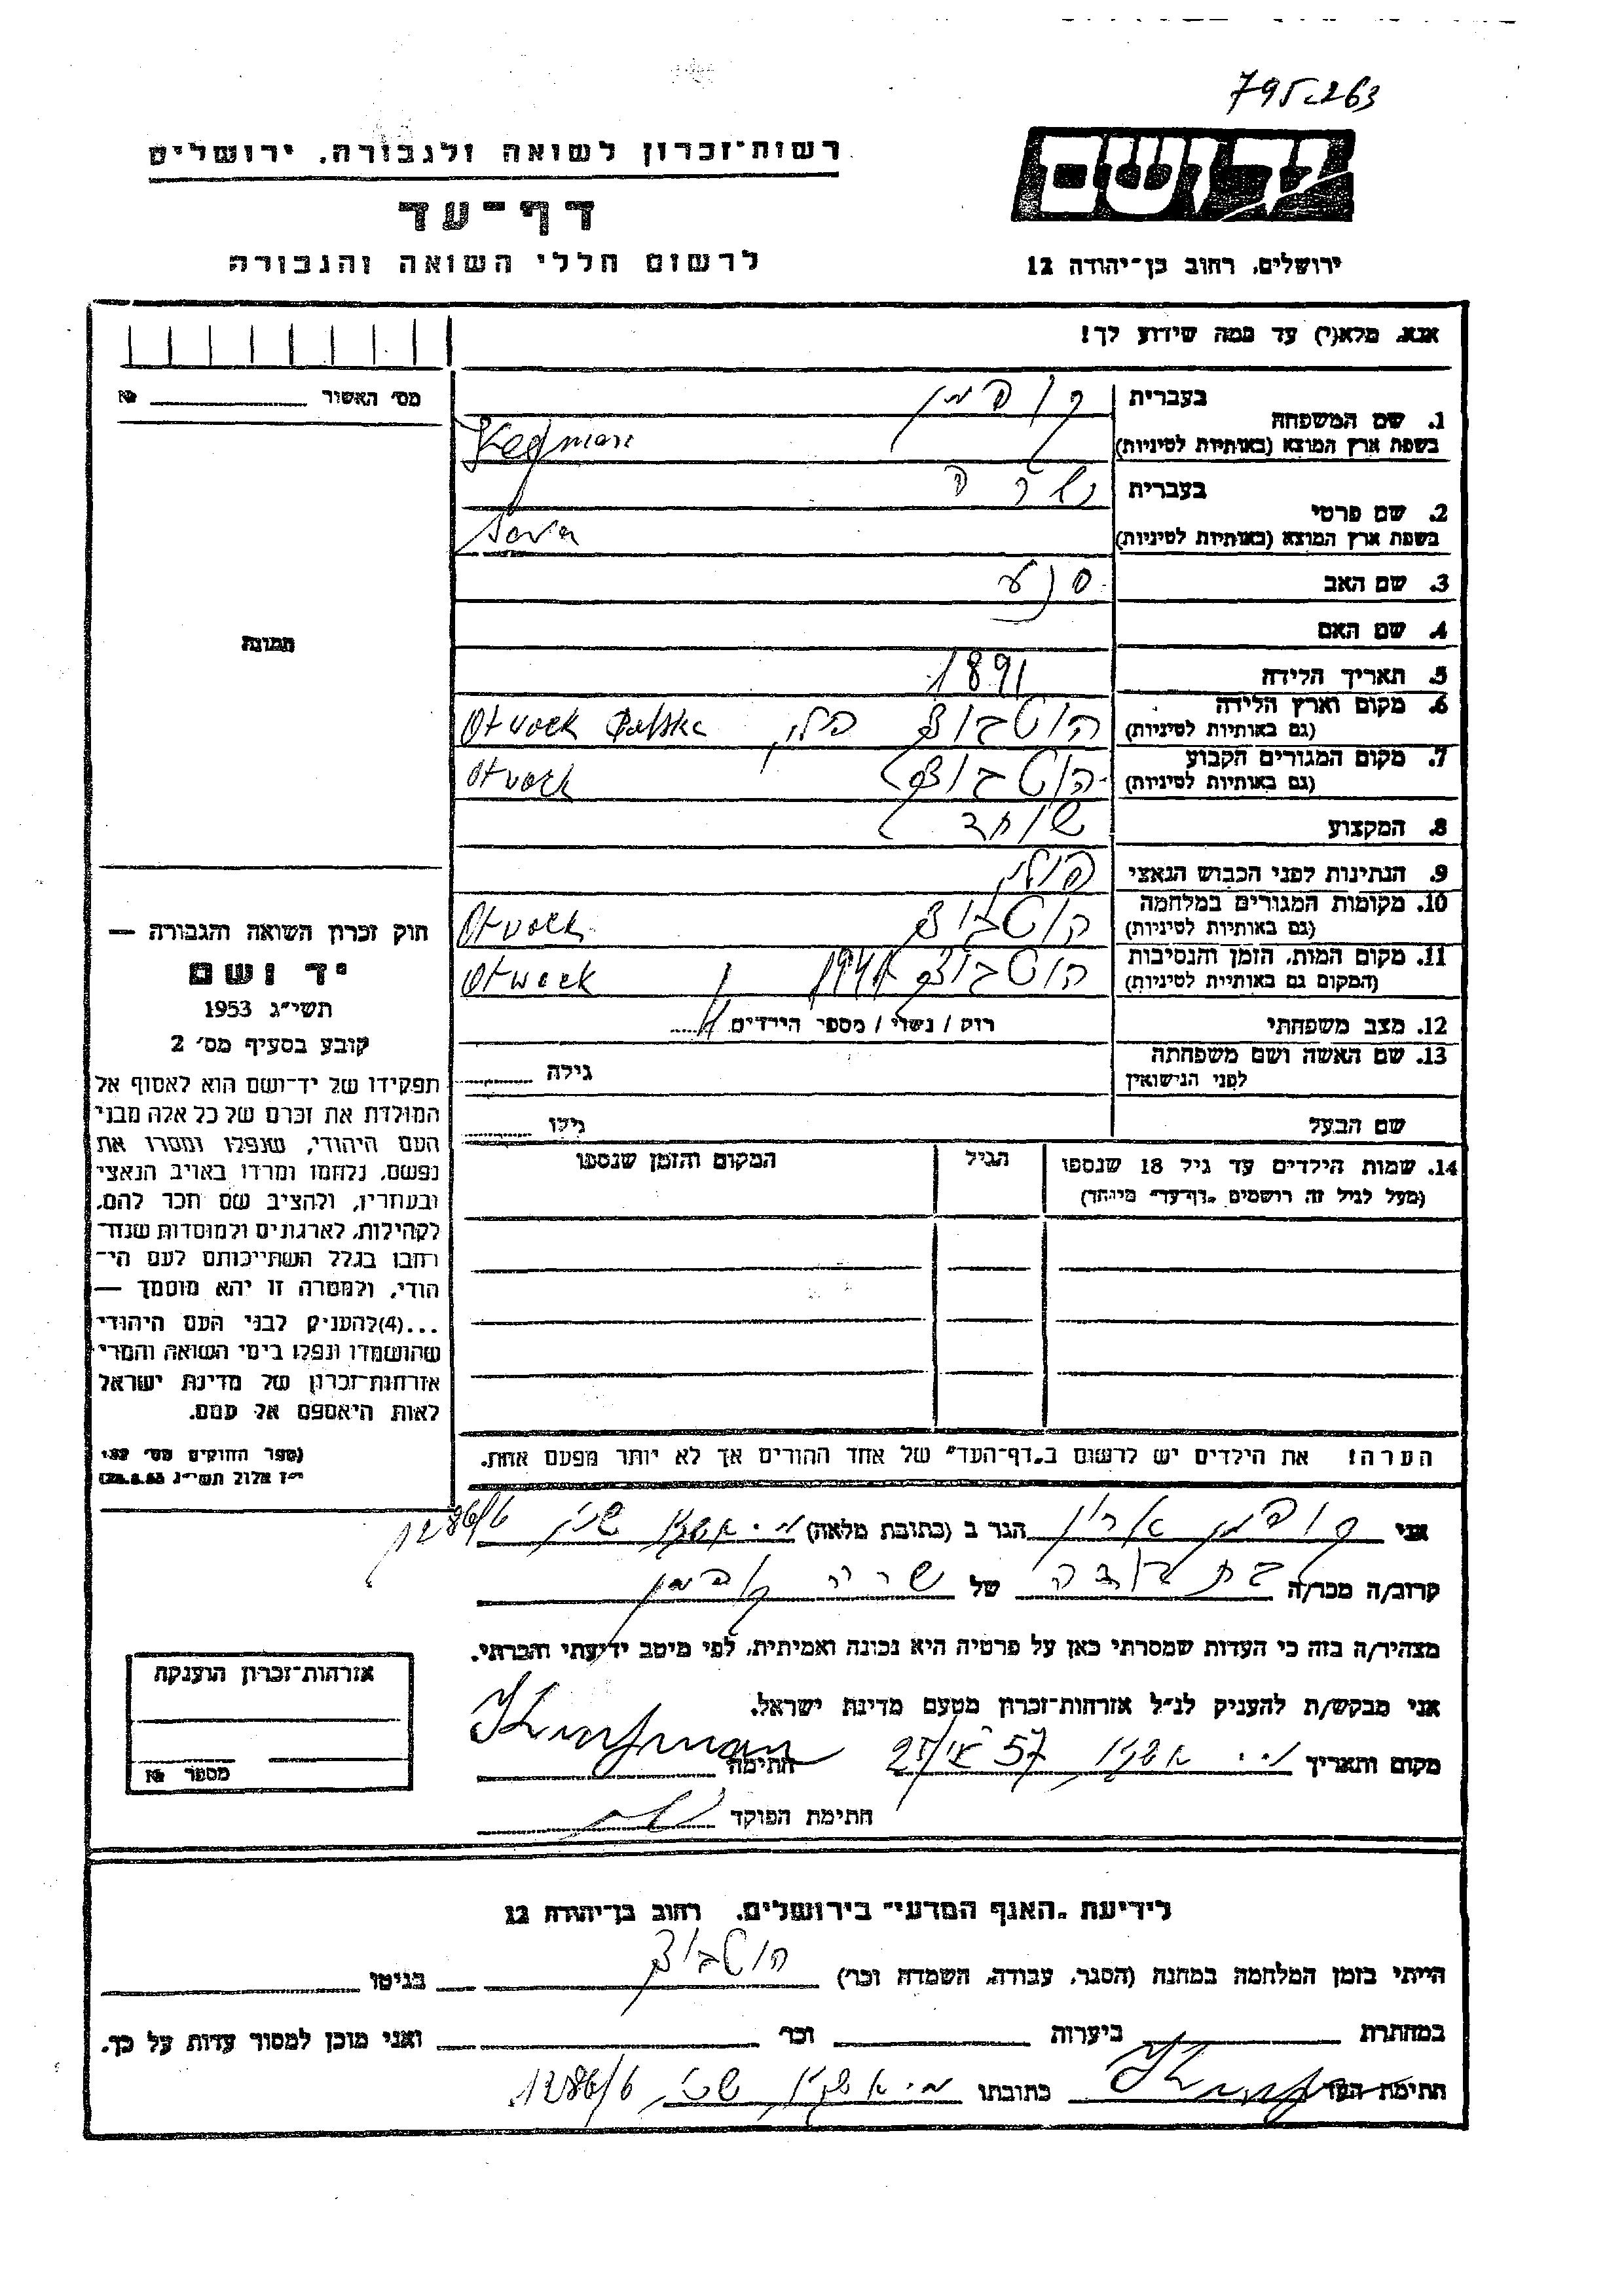 795.263
רשות־זכרון לשואה ולגבורה, ירושלים
יד ושם
דף־עד
לרשום חללי השואה והגבורה
ירושלים, רחוב בן־יהודה 12
אנא, מלא(י) עד כמה שידוע לך!
מס' האשור №
1. שם המשפחה
בעברית
בשפת ארץ המוצא (באותיות לטיניות)
2. שם פרטי
בעברית שרה
בשפת ארץ המוצא (באותיות לטיניות) Sara
3. שם האב
4. שם האם
תמונה
5. תאריך הלידה 1891
6. מקום וארץ הלידה
(גם באותיות לטיניות) Otvock Polska
7. מקום המגורים הקבוע
(גם באותיות לטיניות) Otvock
8. המקצוע
9. הנתינות לפני הכבוש הנאצי פולין
10. מקומות המגורים במלחמה
(גם באותיות לטיניות) Otvock
11. מקום המות, הזמן והנסיבות 1941
(המקום גם באותיות לטיניות) Otwock
12. מצב משפחתי רוק / נשוי / מספר הילדים
13. שם האשה ושם משפחתה
לפני הנישואין גילה
שם הבעל גילו
14. שמות הילדים עד גיל 18 שנספו הגיל המקום והזמן שנספו
(מעל לגיל זה רושמים „דף־עד״ מיוחד)
הערה! את הילדים יש לרשום ב„דף־העד״ של אחד ההורים אך לא יותר מפעם אחת.
חוק זכרון השואה והגבורה —
יד ושם
תשי״ג 1953
קובע בסעיף מס' 2
תפקידו של יד־ושם הוא לאסוף אל
המולדת את זכרם של כל אלה מבני
העם היהודי, שנפלו ומסרו את
נפשם, נלחמו ומרדו באויב הנאצי
ובעוזריו, ולהציב שם וזכר להם,
לקהילות, לארגונים ולמוסדות שנח־
רבו בגלל השתייכותם לעם הי־
הודי, ולמטרה זו יהא מוסמך —
...(4)להעניק לבני העם היהודי
שהושמדו ונפלו בימי השואה והמרי
אזרחות־זכרון של מדינת ישראל
לאות היאספם אל עמם.
(ספר החוקים מס' 132
י״ז אלול תשי״ג 28.8.53)
אני הגר ב (כתובת מלאה) 1286/6
קרוב/ה מכר/ה של שרה
מצהיר/ה בזה כי העדות שמסרתי כאן על פרטיה היא נכונה ואמיתית, לפי מיטב ידיעתי והכרתי.
אני מבקש/ת להעניק לנ״ל אזרחות־זכרון מטעם מדינת ישראל.
מקום ותאריך 57 חתימה
חתימת הפוקד
אזרחות־זכרון הוענקה
מספר №
לידיעת „האגף המדעי״ בירושלים, רחוב בן־יהודה 12
הייתי בזמן המלחמה במחנה (הסגר, עבודה, השמדה וכר') בגיטו
במחתרת ביערות וכר' ואני מוכן למסור עדות על כך.
חתימת העד כתובתו 1286/6